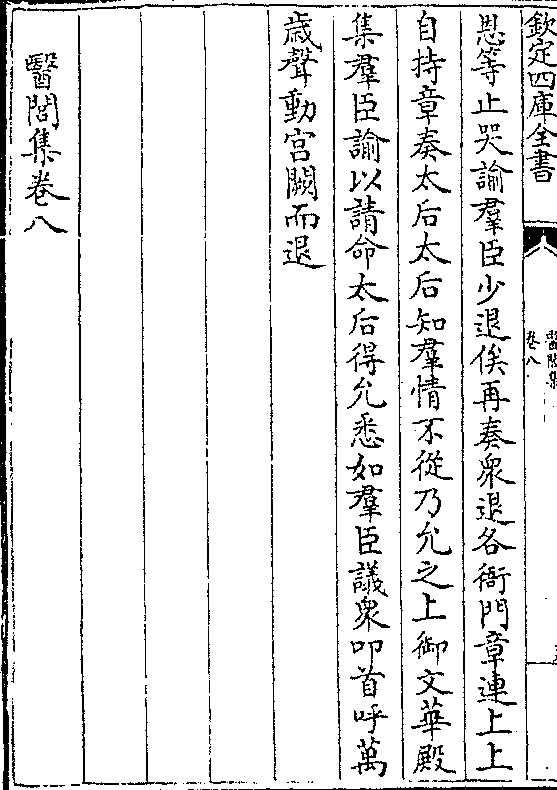 欽定四庫全書
醫閭集
卷八
恩等止哭諭羣臣少退俟再奏衆退各衙門章連上上
自持章奏太后太后知羣情不從乃允之上御文華殿
集羣臣諭以請命太后得允悉如羣臣議衆叩首呼萬
歲聲動宫闕而退
醫閭集卷八